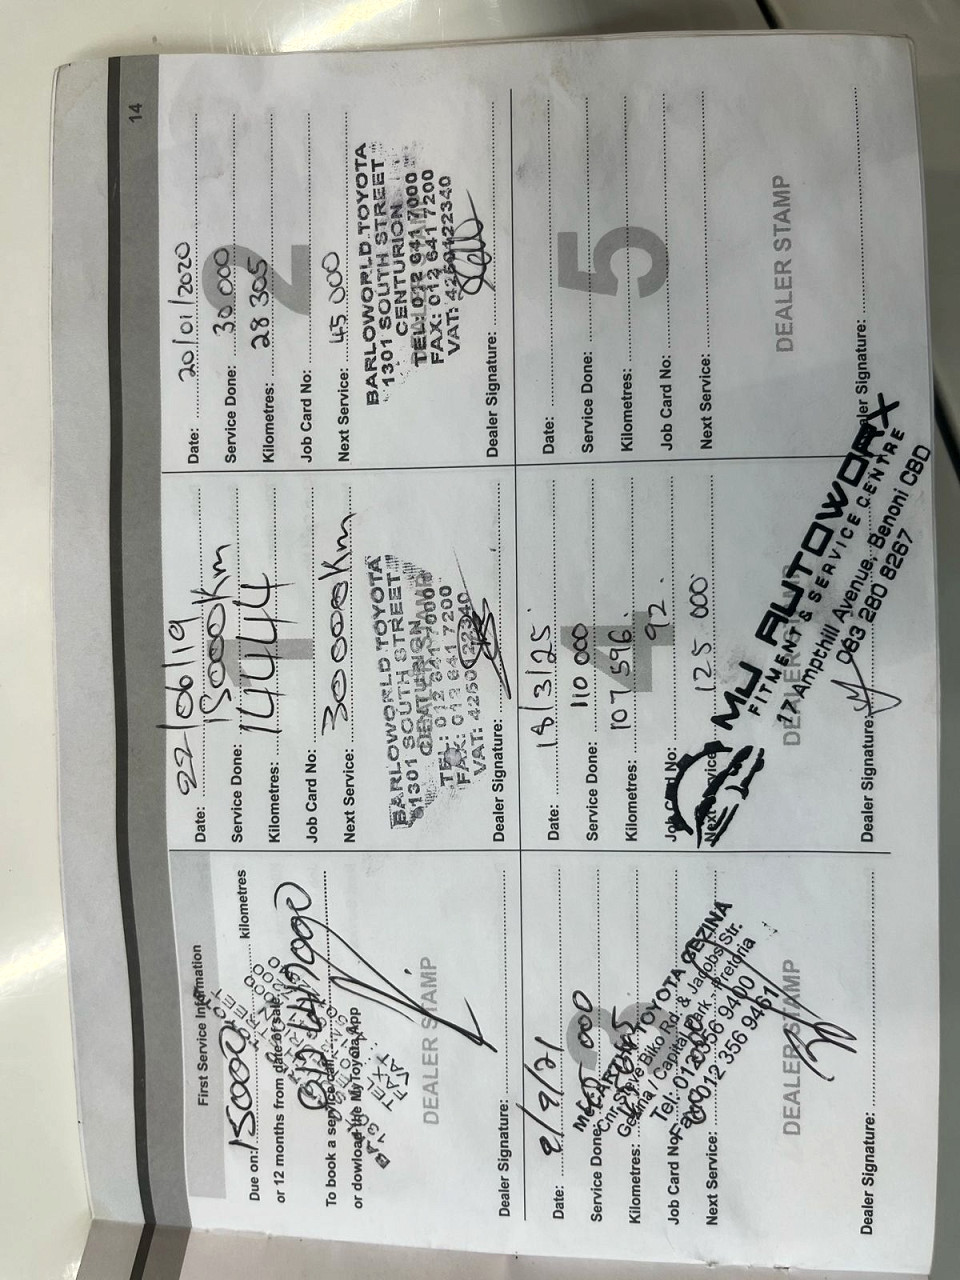 14
First Service Information
Due on: 15000 kilometres
or 12 months from date of sale.
To book a service call
or dowload the MyToyota App
012 6417000
DEALER STAMP
Dealer Signature:
1
Date: 22/06/19
Service Done: 15000Km
Kilometres: 14444
Job Card No:
Next Service: 30000Km
BARLOWORLD TOYOTA
1301 SOUTH STREET
CENTURION
TEL: 012 641 7000
FAX: 012 641 7200
VAT: 4260122340
Dealer Signature:
2
Date: 20/01/2020
Service Done: 30 000
Kilometres: 28 305
Job Card No:
Next Service: 45 000
BARLOWORLD TOYOTA
1301 SOUTH STREET
CENTURION
TEL: 012 641 7000
FAX: 012 641 7200
VAT: 4260122340
Dealer Signature:
3
Date: 8/9/21
Service Done: 000
Kilometres:
Job Card No:
Next Service:
TOYOTA GEZINA
Cnr. Steve Biko Rd. & Jacobs Str.
Gezina / Capital Park, Pretoria
Tel: 012 356 9400
Fax: 012 356 9461
DEALER STAMP
Dealer Signature:
4
Date: 18/3/25
Service Done: 110 000
Kilometres: 107 596.
Job Card No: 92.
Next Service: 125 000
MJ AUTOWORX
FITMENT & SERVICE CENTRE
17 Ampthill Avenue, Benoni CBD
063 280 8267
DEALER STAMP
Dealer Signature:
5
Date:
Service Done:
Kilometres:
Job Card No:
Next Service:
DEALER STAMP
Dealer Signature: